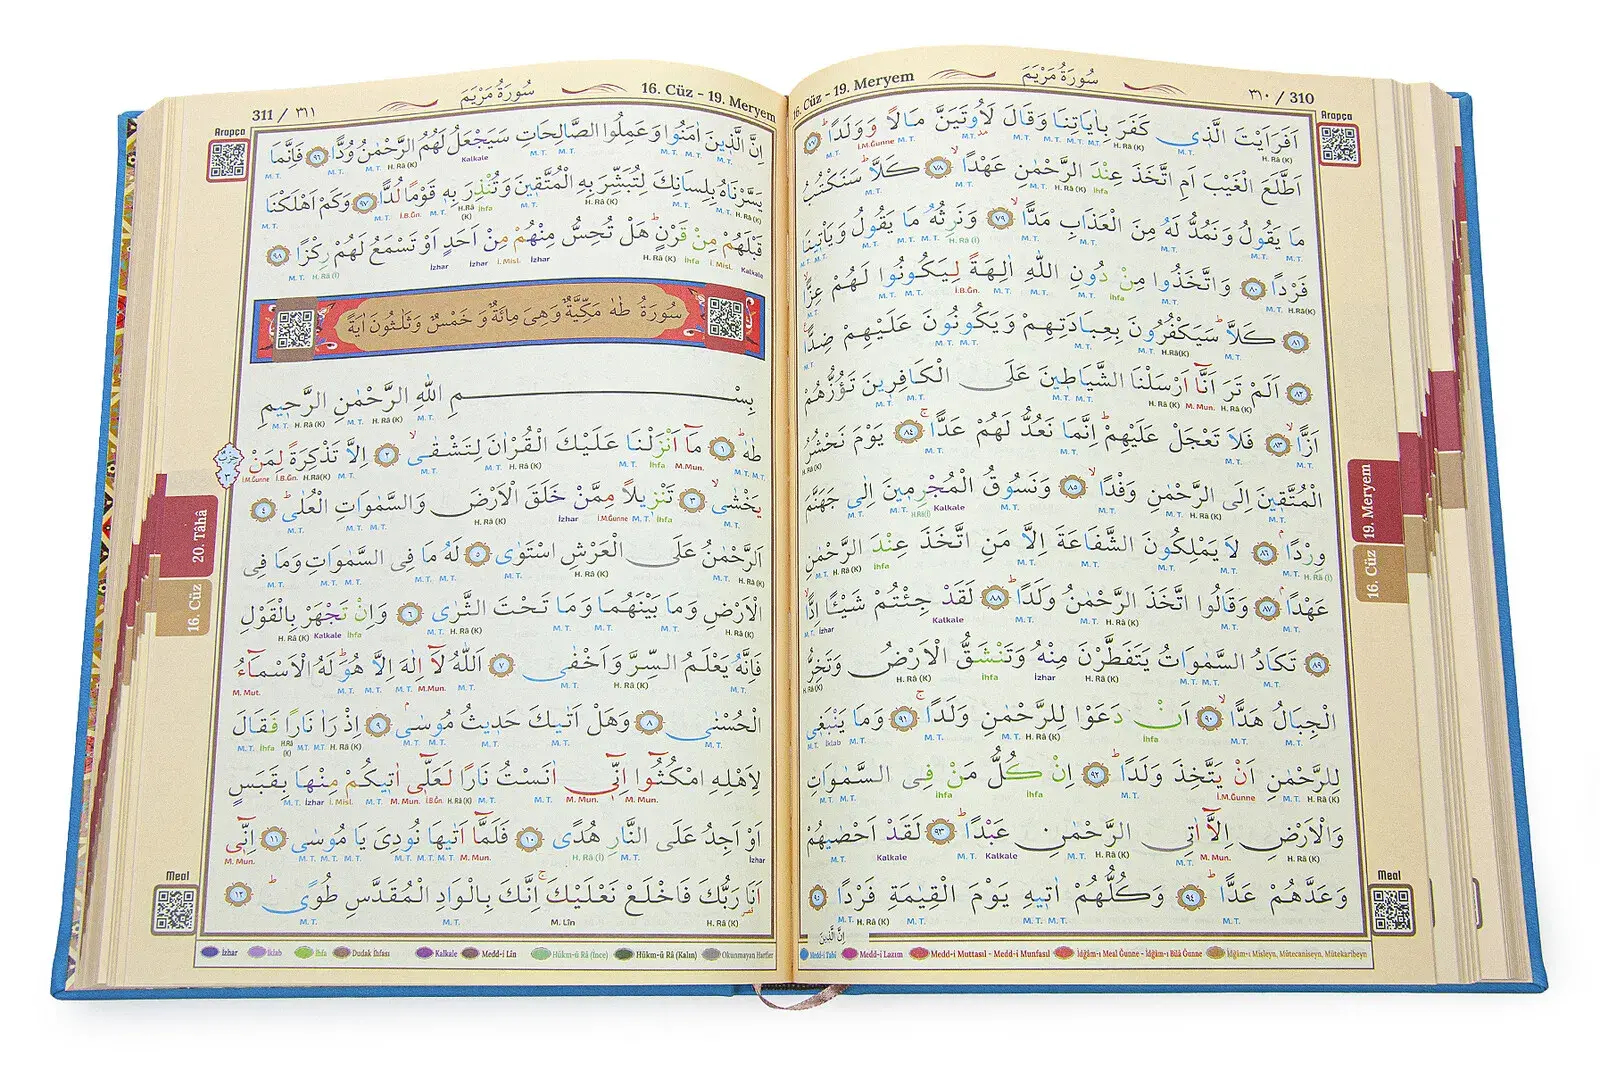 16. Cüz - 19. Meryem سُورَةُ مَرْيَمَ ٣١٠ / 310
Arapça
اَفَرَاَيْتَ الَّذٖى كَفَرَ بِاٰيَاتِنَا وَقَالَ لَاُوتَيَنَّ مَالًا وَوَلَدًا ﴿٧٧﴾
اَطَّلَعَ الْغَيْبَ اَمِ اتَّخَذَ عِنْدَ الرَّحْمٰنِ عَهْدًا ﴿٧٨﴾ كَلَّا سَنَكْتُبُ
مَا يَقُولُ وَنَمُدُّ لَهُ مِنَ الْعَذَابِ مَدًّا ﴿٧٩﴾ وَنَرِثُهُ مَا يَقُولُ وَيَأْتٖينَا
فَرْدًا ﴿٨٠﴾ وَاتَّخَذُوا مِنْ دُونِ اللّٰهِ اٰلِهَةً لِيَكُونُوا لَهُمْ عِزًّا
﴿٨١﴾ كَلَّا سَيَكْفُرُونَ بِعِبَادَتِهِمْ وَيَكُونُونَ عَلَيْهِمْ ضِدًّا
﴿٨٢﴾ اَلَمْ تَرَ اَنَّا اَرْسَلْنَا الشَّيَاطٖينَ عَلَى الْكَافِرٖينَ تَؤُزُّهُمْ
اَزًّا ﴿٨٣﴾ فَلَا تَعْجَلْ عَلَيْهِمْ اِنَّمَا نَعُدُّ لَهُمْ عَدًّا ﴿٨٤﴾ يَوْمَ نَحْشُرُ
الْمُتَّقٖينَ اِلَى الرَّحْمٰنِ وَفْدًا ﴿٨٥﴾ وَنَسُوقُ الْمُجْرِمٖينَ اِلٰى جَهَنَّمَ
وِرْدًا ﴿٨٦﴾ لَا يَمْلِكُونَ الشَّفَاعَةَ اِلَّا مَنِ اتَّخَذَ عِنْدَ الرَّحْمٰنِ
عَهْدًا ﴿٨٧﴾ وَقَالُوا اتَّخَذَ الرَّحْمٰنُ وَلَدًا ﴿٨٨﴾ لَقَدْ جِئْتُمْ شَيْئًا اِدًّا
﴿٨٩﴾ تَكَادُ السَّمٰوَاتُ يَتَفَطَّرْنَ مِنْهُ وَتَنْشَقُّ الْاَرْضُ وَتَخِرُّ
الْجِبَالُ هَدًّا ﴿٩٠﴾ اَنْ دَعَوْا لِلرَّحْمٰنِ وَلَدًا ﴿٩١﴾ وَمَا يَنْبَغٖى
لِلرَّحْمٰنِ اَنْ يَتَّخِذَ وَلَدًا ﴿٩٢﴾ اِنْ كُلُّ مَنْ فِى السَّمٰوَاتِ
وَالْاَرْضِ اِلَّا اٰتِى الرَّحْمٰنِ عَبْدًا ﴿٩٣﴾ لَقَدْ اَحْصٰيهُمْ
وَعَدَّهُمْ عَدًّا ﴿٩٤﴾ وَكُلُّهُمْ اٰتٖيهِ يَوْمَ الْقِيٰمَةِ فَرْدًا ﴿٩٥﴾
اِنَّ الَّذٖينَ
19. Meryem
16. Cüz
Meal
Medd-i Tabî Medd-i Lazım Medd-i Muttasıl - Medd-i Munfasıl İdğâm-ı Meal Ğunne - İdğâm-ı Bilâ Ğunne İdğâm-ı Misleyn, Mütecaniseyn, Mütekaribeyn
311 / ٣١١ سُورَةُ مَرْيَمَ 16. Cüz - 19. Meryem
Arapça
اِنَّ الَّذٖينَ اٰمَنُوا وَعَمِلُوا الصَّالِحَاتِ سَيَجْعَلُ لَهُمُ الرَّحْمٰنُ وُدًّا ﴿٩٦﴾ فَاِنَّمَا
يَسَّرْنَاهُ بِلِسَانِكَ لِتُبَشِّرَ بِهِ الْمُتَّقٖينَ وَتُنْذِرَ بِهٖ قَوْمًا لُدًّا ﴿٩٧﴾ وَكَمْ اَهْلَكْنَا
قَبْلَهُمْ مِنْ قَرْنٍ هَلْ تُحِسُّ مِنْهُمْ مِنْ اَحَدٍ اَوْ تَسْمَعُ لَهُمْ رِكْزًا ﴿٩٨﴾
سُورَةُ طٰهٰ مَكِّيَّةٌ وَهِىَ مِائَةٌ وَ خَمْسٌ وَثَلٰثُونَ اٰيَةً
بِسْمِ اللّٰهِ الرَّحْمٰنِ الرَّحٖيمِ
طٰهٰ ﴿١﴾ مَا اَنْزَلْنَا عَلَيْكَ الْقُرْاٰنَ لِتَشْقٰى ﴿٢﴾ اِلَّا تَذْكِرَةً لِمَنْ
يَخْشٰى ﴿٣﴾ تَنْزٖيلًا مِمَّنْ خَلَقَ الْاَرْضَ وَالسَّمٰوَاتِ الْعُلٰى ﴿٤﴾
اَلرَّحْمٰنُ عَلَى الْعَرْشِ اسْتَوٰى ﴿٥﴾ لَهُ مَا فِى السَّمٰوَاتِ وَمَا فِى
الْاَرْضِ وَمَا بَيْنَهُمَا وَمَا تَحْتَ الثَّرٰى ﴿٦﴾ وَاِنْ تَجْهَرْ بِالْقَوْلِ
فَاِنَّهُ يَعْلَمُ السِّرَّ وَاَخْفٰى ﴿٧﴾ اَللّٰهُ لَا اِلٰهَ اِلَّا هُوَ لَهُ الْاَسْمَاءُ
الْحُسْنٰى ﴿٨﴾ وَهَلْ اَتٰيكَ حَدٖيثُ مُوسٰى ﴿٩﴾ اِذْ رَاٰ نَارًا فَقَالَ
لِاَهْلِهِ امْكُثُوا اِنّٖى اٰنَسْتُ نَارًا لَعَلّٖى اٰتٖيكُمْ مِنْهَا بِقَبَسٍ
اَوْ اَجِدُ عَلَى النَّارِ هُدًى ﴿١٠﴾ فَلَمَّا اَتٰيهَا نُودِىَ يَا مُوسٰى ﴿١١﴾ اِنّٖى
اَنَا رَبُّكَ فَاخْلَعْ نَعْلَيْكَ اِنَّكَ بِالْوَادِ الْمُقَدَّسِ طُوًى ﴿١٢﴾
20. Tâhâ
16. Cüz
Meal
İzhar İklab İhfa Dudak İhfası Kalkale Medd-i Lîn Hükm-ü Râ (İnce) Hükm-ü Râ (Kalın) Okunmayan Harfler